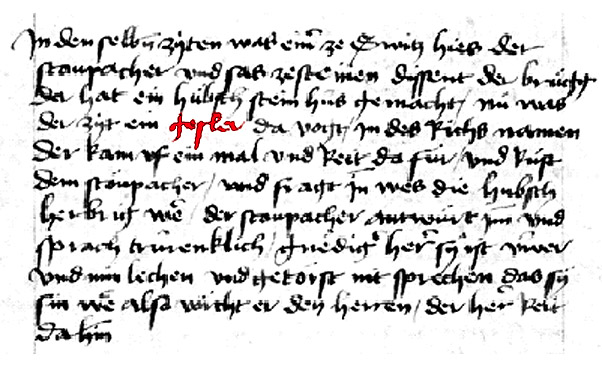 In den selben zÿten was einr ze Switz hies der
stoupacher vnd sas ze steinen dissent der brugg
der hat ein hübsch stein hus gemacht / nu was
der zÿt ein gesler da vogt / in des Richs namen
der kam vf ein mal vnd Reit da für / vnd rüft
dem stoupacher / vnd fragt Jnn wes die hubsch
herbrig wer / der stoupacher antwurt im vnd
sprach trurenklich / gnediger herr sy ist vwer
vnd min lechen vnd getorst nit sprechen das sÿ
sin wer also vorcht er den herren / der herr Reit
da hin